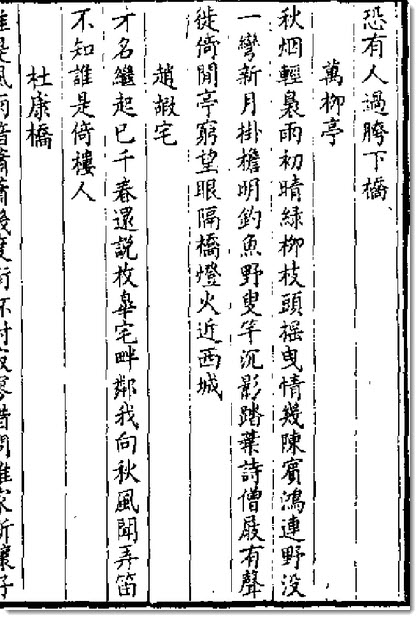 恐有人過胯下橋
萬栁亭
秋烟輕裊雨初晴緑栁枝頭揺曳情幾陳賓鴻連野没
一彎新月掛檐明釣魚野叟竿沉影踏葉詩僧屐有聲
徙倚閒亭窮望眼隔橋燈火近西城
趙嘏宅
才名繼起已千春還説枚臯宅畔鄰我向秋風聞弄笛
不知誰是倚樓人
杜康橋